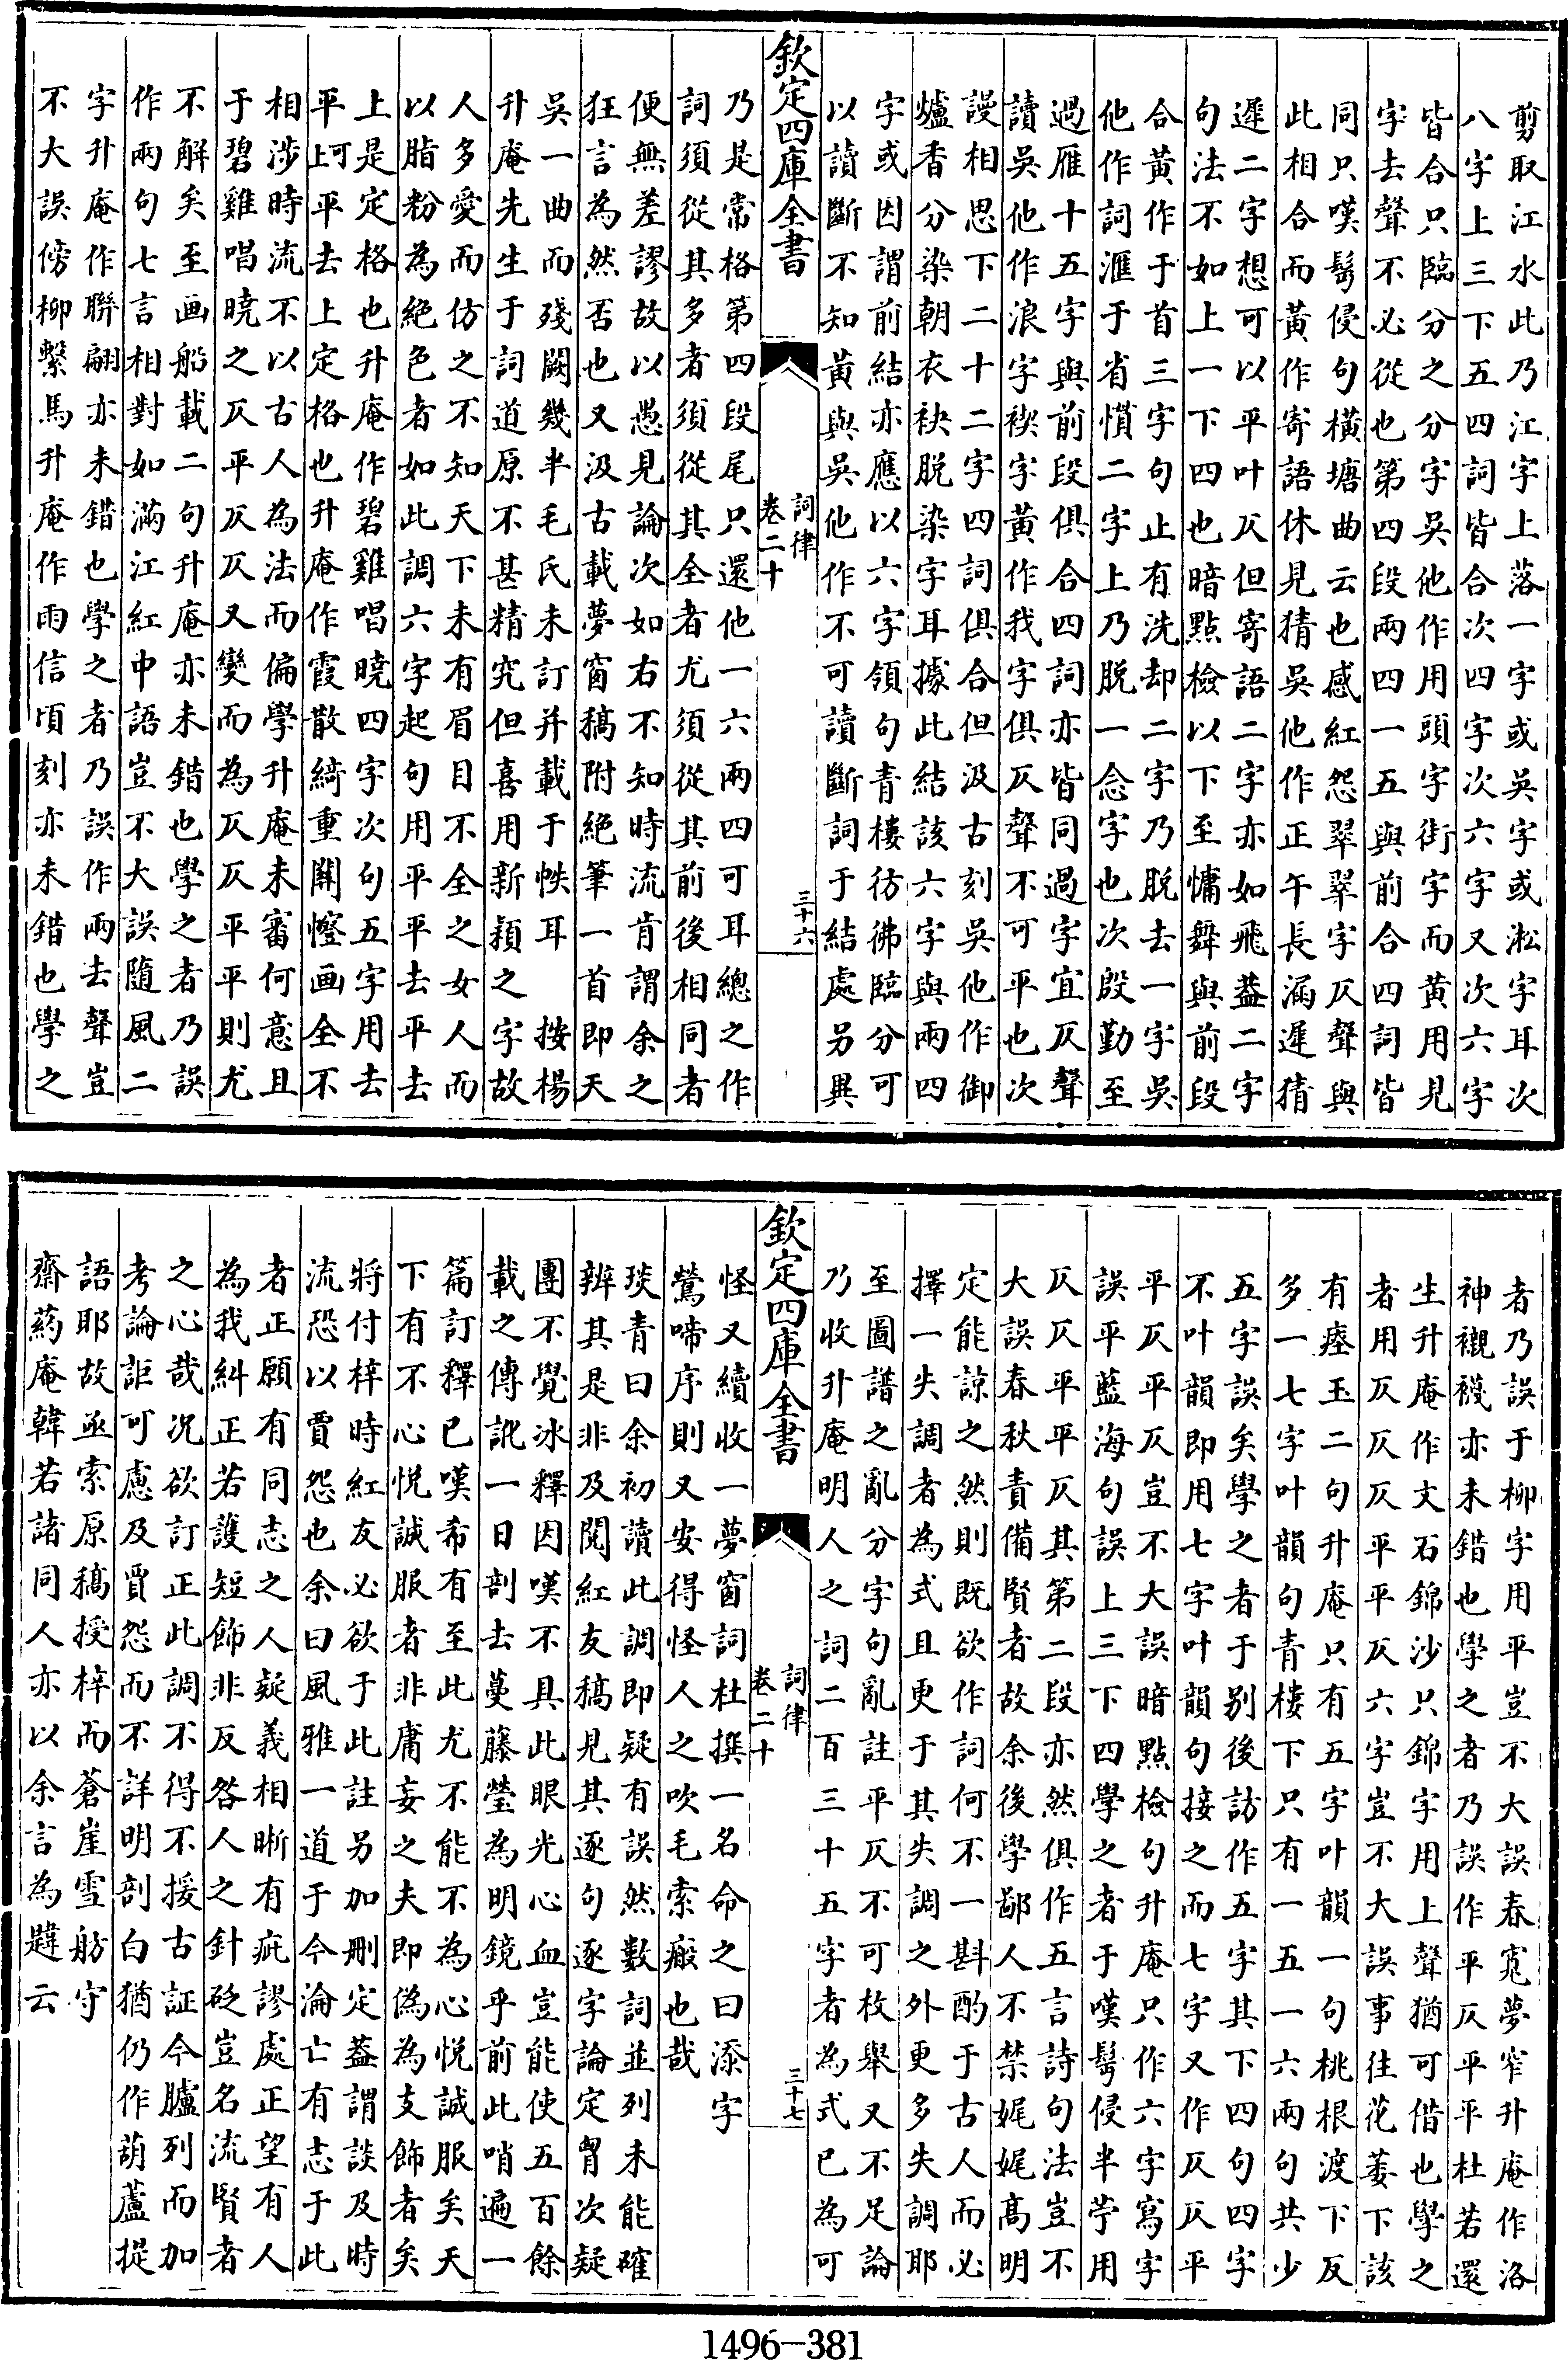 剪取江水此乃江字上落一字或吳字或淞字耳次
八字上三下五四詞皆合次四字次六字又次六字
皆合只臨分之分字吳他作用頭字街字而黃用見
字去聲不必從也第四段兩四一五與前合四詞皆
同只嘆髩侵句橫塘曲云也感紅怨翠翠字仄聲與
此相合而黃作寄語休見猜吳他作正午長漏遲猜
遲二字想可以平叶仄但寄語二字亦如飛葢二字
句法不如上一下四也暗點檢以下至慵舞與前段
合黃作于首三字句止有洗却二字乃脫去一字吳
他作詞滙于省慣二字上乃脫一念字也次殷勤至
過雁十五字與前段俱合四詞亦皆同過字宜仄聲
讀吳他作浪字禊字黃作我字俱仄聲不可平也次
謾相思下二十二字四詞俱合但汲古刻吳他作御
爐香分染朝衣袂脫染字耳據此結該六字與兩四
字或因謂前結亦應以六字領句青樓彷彿臨分可
以讀斷不知黃與吳他作不可讀斷詞于結處另異
欽定四庫全書
詞律
卷二十
三十六
乃是常格第四段尾只還他一六兩四可耳總之作
詞須從其多者須從其全者尤須從其前後相同者
便無差謬故以愚見論次如右不知時流肯謂余之
狂言為然否也又汲古載夢窗稿附絕筆一首即天
吳一曲而殘闕幾半毛氏未訂并載于帙耳　按楊
升庵先生于詞道原不甚精究但喜用新穎之字故
人多愛而仿之不知天下未有眉目不全之女人而
以脂粉為絕色者如此調六字起句用平平去平去
上是定格也升庵作碧雞唱曉四字次句五字用去
平上可平平去上定格也升庵作霞散綺重關慳画全不
相涉時流不以古人為法而偏學升庵未審何意且
于碧雞唱曉之仄平仄仄又變而為仄仄平平則尤
不解矣至画船載二句升庵亦未錯也學之者乃誤
作兩句七言相對如滿江紅中語豈不大誤隨風二
字升庵作聯翩亦未錯也學之者乃誤作兩去聲豈
不大誤傍柳繫馬升庵作雨信頃刻亦未錯也學之
者乃誤于柳字用平豈不大誤春寬夢窄升庵作洛
神襯襪亦未錯也學之者乃誤作平仄平平杜若還
生升庵作文石錦沙只錦字用上聲猶可借也學之
者用仄仄仄平平仄六字豈不大誤事往花萎下該
有瘞玉二句升庵只有五字叶韻一句桃根渡下反
多一七字叶韻句青樓下只有一五一六兩句共少
五字誤矣學之者于别後訪作五字其下四句四字
不叶韻即用七字叶韻句接之而七字又作仄仄平
平仄平仄豈不大誤暗點檢句升庵只作六字寫字
誤平藍海句誤上三下四學之者于嘆髩侵半苧用
仄仄平平仄其第二段亦然俱作五言詩句法豈不
大誤春秋責備賢者故余後學鄙人不禁娓娓高明
定能諒之然則既欲作詞何不一斟酌于古人而必
擇一失調者為式且更于其失調之外更多失調耶
至圖譜之亂分字句亂註平仄不可枚舉又不足論
乃收升庵明人之詞二百三十五字者為式已為可
欽定四庫全書
詞律
卷二十
三十七
怪又續收一夢窗詞杜撰一名命之曰添字
鶯啼序則又安得怪人之吹毛索瘢也哉
琰青曰余初讀此調即疑有誤然數詞並列未能確
辨其是非及閱紅友稿見其逐句逐字論定胷次疑
團不覺冰釋因嘆不具此眼光心血豈能使五百餘
載之傳訛一日剖去蔓藤瑩為明鏡乎前此哨遍一
篇訂釋已嘆希有至此尤不能不為心悅誠服矣天
下有不心悅誠服者非庸妄之夫即偽為支飾者矣
將付梓時紅友必欲于此註另加刪定葢謂談及時
流恐以賈怨也余曰風雅一道于今淪亡有志于此
者正願有同志之人疑義相晰有疵謬處正望有人
為我糾正若護短飾非反咎人之針砭豈名流賢者
之心哉况欲訂正此調不得不援古証今臚列而加
考論詎可慮及賈怨而不詳明剖白猶仍作葫蘆提
語耶故亟索原稿授梓而蒼崖雪舫守
齋葯庵韓若諸同人亦以余言為韙云
1496-381